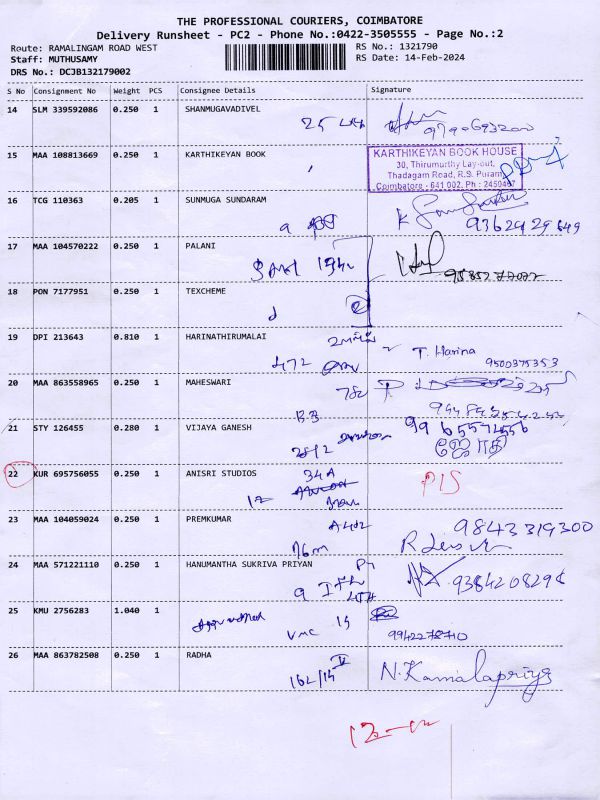 THE PROFESSIONAL COURIERS, COIMBATORE
Delivery Runsheet - PC2 - Phone No.:0422-3505555 - Page No.:2
Route: RAMALINGAM ROAD WEST
Staff: MUTHUSAMY
DRS No.: DCJB132179002
RS No.: 1321790
RS Date: 14-Feb-2024
S No Consignment No Weight PCS Consignee Details Signature
14 SLM 339592086 0.250 1 SHANMUGAVADIVEL
25
15 MAA 108813669 0.250 1 KARTHIKEYAN BOOK
KARTHIKEYAN BOOK HOUSE
30, Thirumurthy Lay-out,
Thadagam Road, R.S. Puram,
Coimbatore - 641 002. Ph : 2450467
16 TCG 110363 0.205 1 SUNMUGA SUNDARAM
9
17 MAA 104570222 0.250 1 PALANI
18 PON 7177951 0.250 1 TEXCHEME
19 DPI 213643 0.810 1 HARINATHIRUMALAI
472
T. Harina
9500375353
20 MAA 863558965 0.250 1 MAHESWARI
782
21 STY 126455 0.280 1 VIJAYA GANESH
9965574556
ஜோதி
22 KUR 695756055 0.250 1 ANISRI STUDIOS
34A
12
PIS
23 PREMKUMAR MAA 104059024 0.250 1
9843319300
24 MAA 571221110 0.250 1 HANUMANTHA SUKRIVA PRIYAN
9
9384208298
25 KMU 2756283 1.040 1
VMC 15
9942278710
26 MAA 863782508 0.250 1 RADHA
162/15
N. Kamalapriya